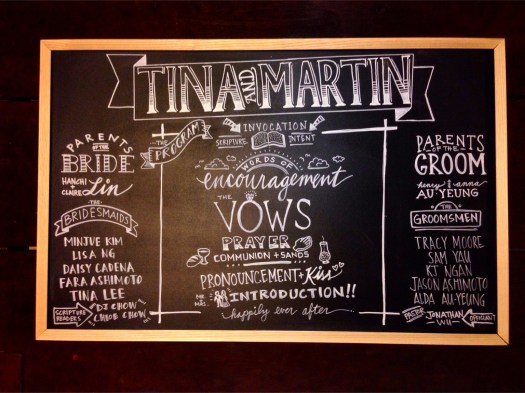 TINA AND MARTIN
PARENTS
OF THE
BRIDE
HANCHI
AND
CLAIRE Lin
THE
BRIDESMAIDS
MINJUE KIM
LISA NG
DAISY CADENA
FARA ASHIMOTO
TINA LEE
SCRIPTURE
READERS
DJ CHOW
CHLOE CHOW
THE
PROGRAM
INVOCATION
SCRIPTURE INTENT
WORDS OF
encouragement
THE
VOWS
PRAYER
COMMUNION + SANDS
PRONOUNCEMENT + Kiss
MR.
MRS. INTRODUCTION!!
happily ever after
PARENTS
OF THE
GROOM
henry & anna
AU-YEUNG
THE
GROOMSMEN
TRACY MOORE
SAM YAU
KT NGAN
JASON ASHIMOTO
ALDA AU-YEUNG
PASTOR JONATHAN
WU OFFICIANT